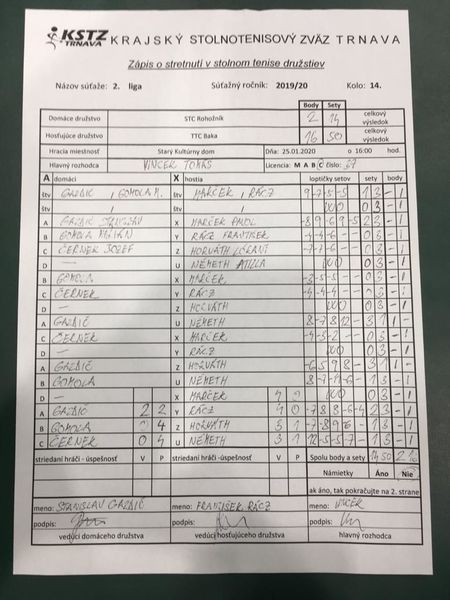 KSTZ TRNAVA KRAJSKÝ STOLNOTENISOVÝ ZVÄZ TRNAVA
Zápis o stretnutí v stolnom tenise družstiev
Názov súťaže: 2. liga Súťažný ročník: 2019/20 Kolo: 14.
Body Sety
Domáce družstvo STC Rohožník 2 14 celkový výsledok
Hosťujúce družstvo TTC Baka 16 50 celkový výsledok
Hracia miestnosť Starý Kultúrny dom Dňa: 25.01.2020 o 16:00 hod.
Hlavný rozhodca VINCER TOMÁŠ Licencia: M A B C číslo:
A domáci X hostia loptičky setov sety body
štv GAZDIČ, GOMOLA M. štv MARČEK, RÁCZ 9 -7 -5 -5 1 3 - 1
štv štv 0 3 - 1
A GAZDIČ STANISLAV X MARČEK PAVOL 2 3 - 1
B GOMOLA MILAN Y RÁCZ FRANTIŠEK -4 -4 -6 0 3 - 1
C ČERNEK JOZEF Z HORVÁTH LÓRANT -7 -7 -6 0 3 - 1
D — U NÉMETH ATILLA 0 3 - 1
B GOMOLA X MARČEK -3 -5 -5 0 3 - 1
C ČERNEK Y RÁCZ -4 -4 -4 0 3 - 1
D — Z HORVÁTH 0 3 - 1
A GAZDIČ U NÉMETH 8 -7 8 12 3 1 1 -
C ČERNEK X MARČEK -4 -3 -2 0 3 - 1
D — Y RÁCZ 0 3 - 1
A GAZDIČ Z HORVÁTH -6 5 9 8 3 1 1 -
B GOMOLA U NÉMETH 1 3 - 1
D — X MARČEK 4 0 0 3 - 1
A GAZDIČ 2 2 Y RÁCZ 4 0 -7 8 8 -6 -4 2 3 - 1
B GOMOLA 0 4 Z HORVÁTH 3 1 1 3 - 1
C ČERNEK 0 4 U NÉMETH 3 1 12 -5 -5 -7 1 3 - 1
striedaní hráči - úspešnosť V P striedaní hráči - úspešnosť V P Spolu body a sety 14 50 2 16
Námietky Áno Nie
ak áno, tak pokračujte na 2. strane
meno: STANISLAV GAZDIČ meno: FRANTIŠEK RÁCZ meno: VINCER
podpis: podpis: podpis:
vedúci domáceho družstva vedúci hosťujúceho družstva hlavný rozhodca